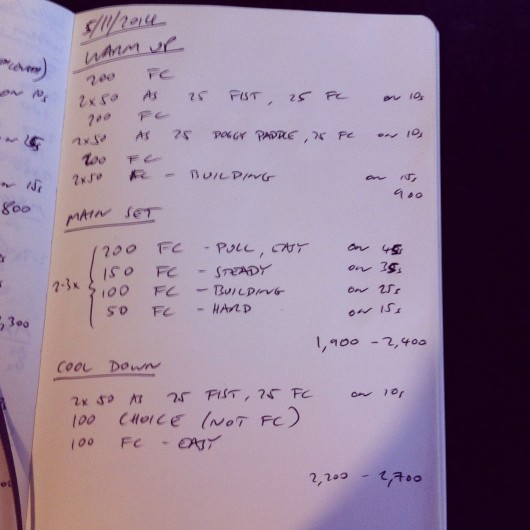 5/11/2014
WARM UP
200 FC
2x50 AS 25 FIST, 25 FC on 10s
200 FC
2x50 AS 25 DOGGY PADDLE, 25 FC on 10s
200 FC
2x50 FC - BUILDING on 15s
900
MAIN SET
2-3x
200 FC - PULL, EASY on 45s
150 FC - STEADY on 35s
100 FC - BUILDING on 25s
50 FC - HARD on 15s
1,900 - 2,400
COOL DOWN
2x 50 AS 25 FIST, 25 FC on 10s
100 CHOICE (NOT FC)
100 FC - EASY
2,200 - 2,700
on 10s
on 25s
on 15s
800
,300